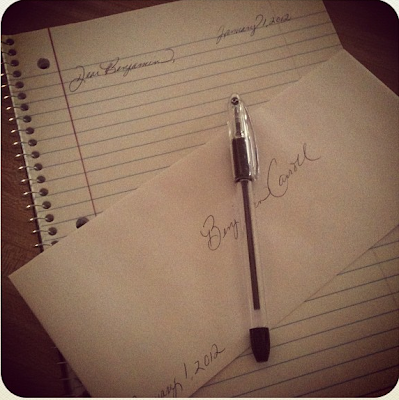 January 1, 2012
Dear Benjamin,
Benjamin Carroll
nuary 1, 2012